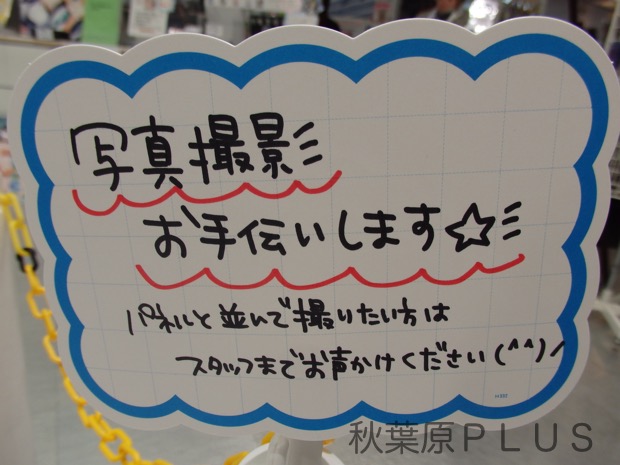 写真撮影
お手伝いします☆
パネルと並んで撮りたい方は
スタッフまでお声かけください(^^)ノ
秋葉原PLUS